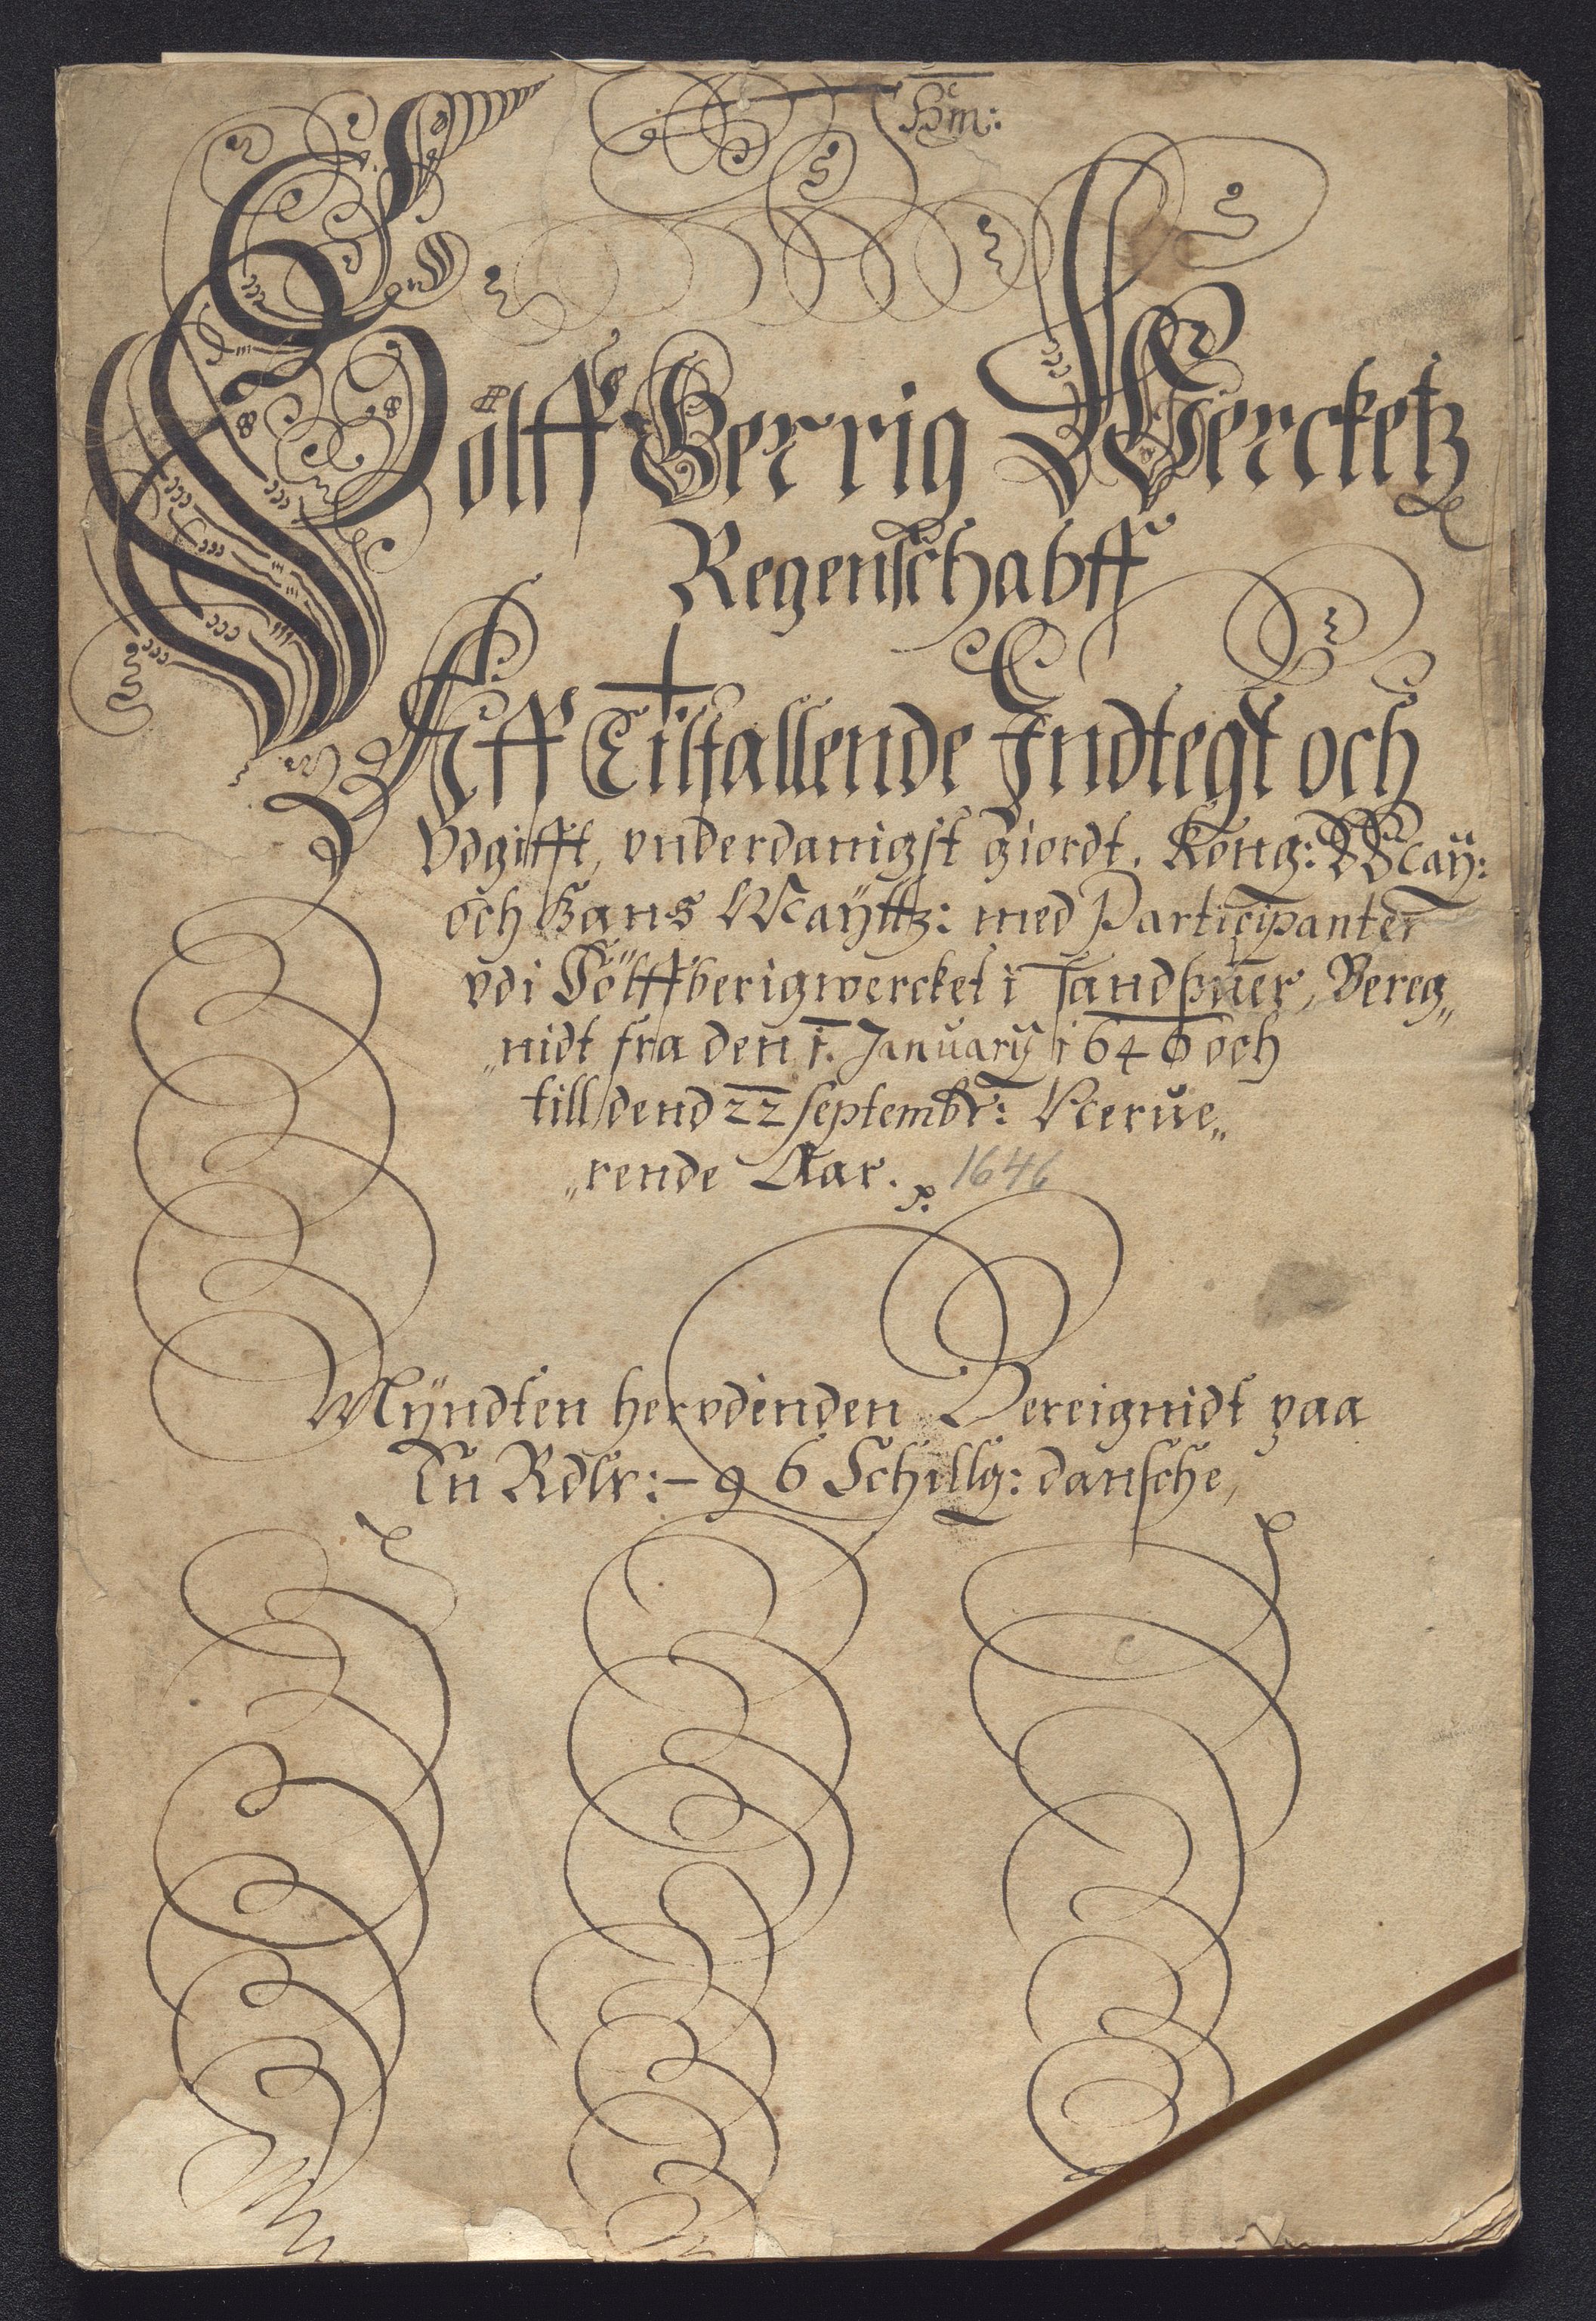 Sölff Berrig Wercketz
Regenschabff
Aff Tilfallende Indtegt och
Vdgifft, vnderdanigst giordt. Kong: May:
och Hans Mayttz: med Participanter
vdi Sölffberigwercket i Sandsuer, Bereg„
„nidt fra den 1. January 1646 och
till dend 22 Septembr: Nerue„
„rende Aar. 1646
Myndten her vdinden Bereignidt paa
En Rdlr: – 96 Schillg: dansche,